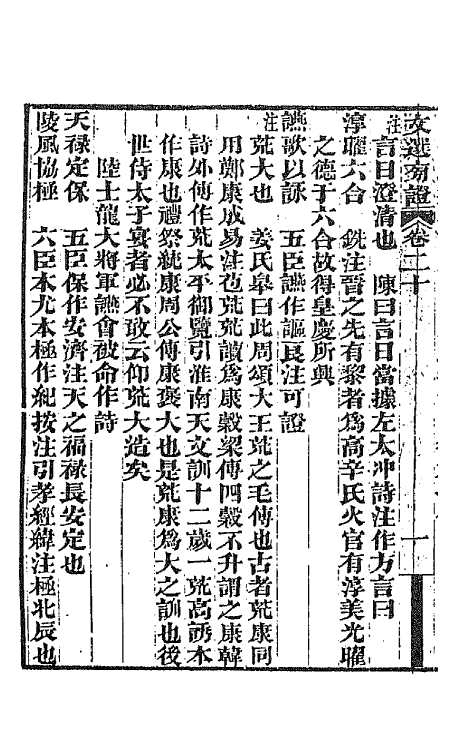 文選旁證 卷二十 一
注言曰澄清也　陳曰言日當據左太冲詩注作方言曰
淳曜六合　銑注晉之先有黎者爲高辛氏火官有淳美光曜
之德于六合故得皇慶所興
讌歌以詠　五臣讌作謳良注可證
注荒大也　姜氏皋曰此周頌大王荒之毛傳也古者荒康同
用鄭康成易注也荒荒讀爲康穀梁傳四穀不升謂之康韓
詩外傳作荒太平御覽引淮南天文訓十二歲一荒高誘本
作康也禮祭統康周公傳康褒大也是荒康爲大之訓也後
世侍太子宴者必不敢云仰荒大造矣
陸士龍大將軍讌會被命作詩
天祿定保　五臣保作安濟注天之福祿長安定也
陵風協極　六臣本尤本極作紀按注引孝經緯注極北辰也